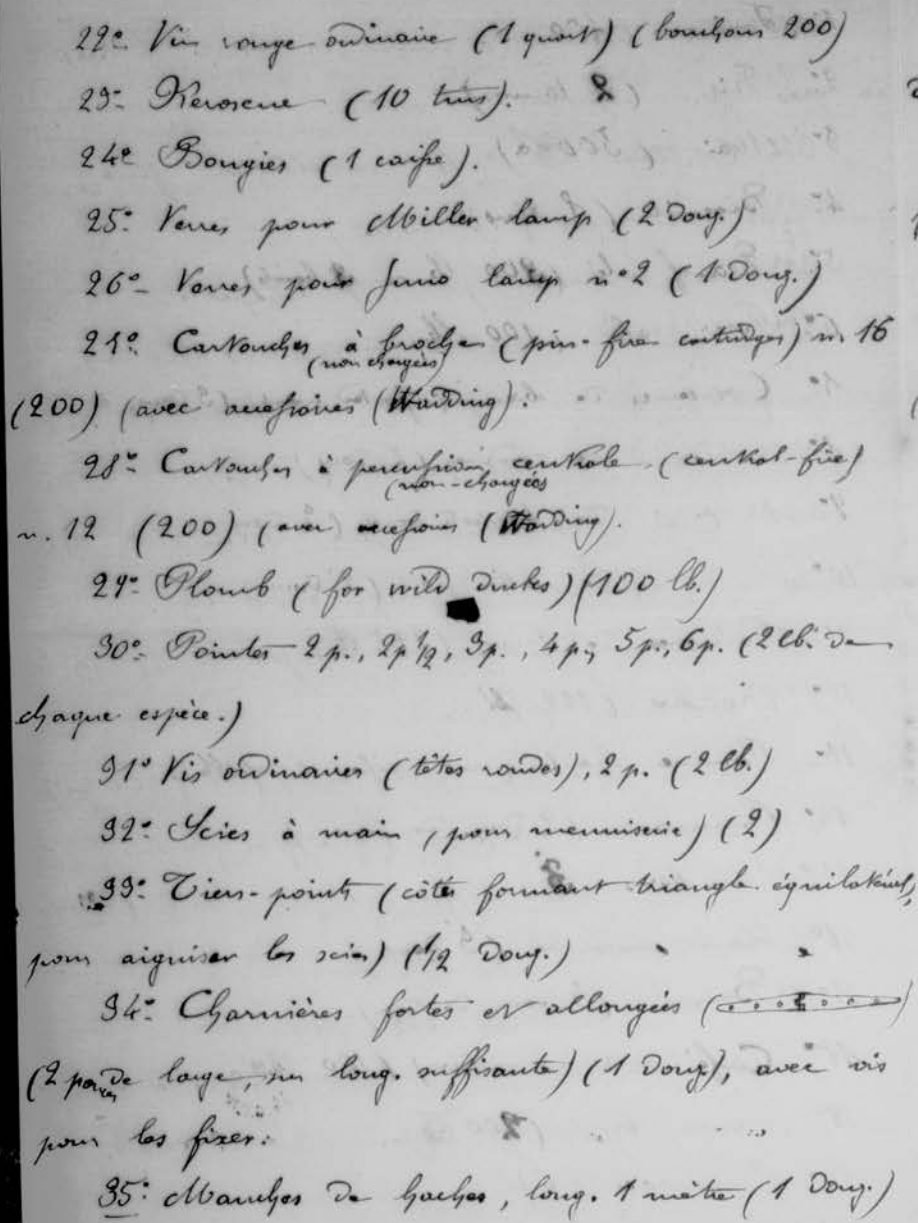 22º Vin rouge ordinaire (1 quart) (bouchons 200)
23º Kerosene (10 tins).
24º Bougies (1 caisse).
25º Verres pour Miller lamp (2 douz.)
26º Verres pour Juno lamp nº 2 (1 Douz.)
27º Cartouches à broche (pin-fire cartridges) n. 16
(non chargées)
(200) (avec accessoires (Wadding).
28º Cartouches à percussion centrale (central-fire)
(non-chargées
n. 12 (200) (avec accessoires (Wadding).
29º Plomb (for wild ducks) (100 lb.)
30º Pointes 2 p., 2p 1/2, 3p., 4 p., 5 p., 6 p. (2 lb. de
chaque espèce.)
31º Vis ordinaires (têtes rondes), 2 p. (2 lb.)
32º Scies à main (pour menuiserie) (2)
33º Tiers-points (côtés formant triangle équilatéral,
pour aiguiser les scies) (1/2 Douz.)
34º Charnières fortes et allongées ( )
(2 pouces de large, sur long. suffisante) (1 Douz), avec vis
pour les fixer.
35º Manches de haches, long. 1 mètre (1 Douz.)